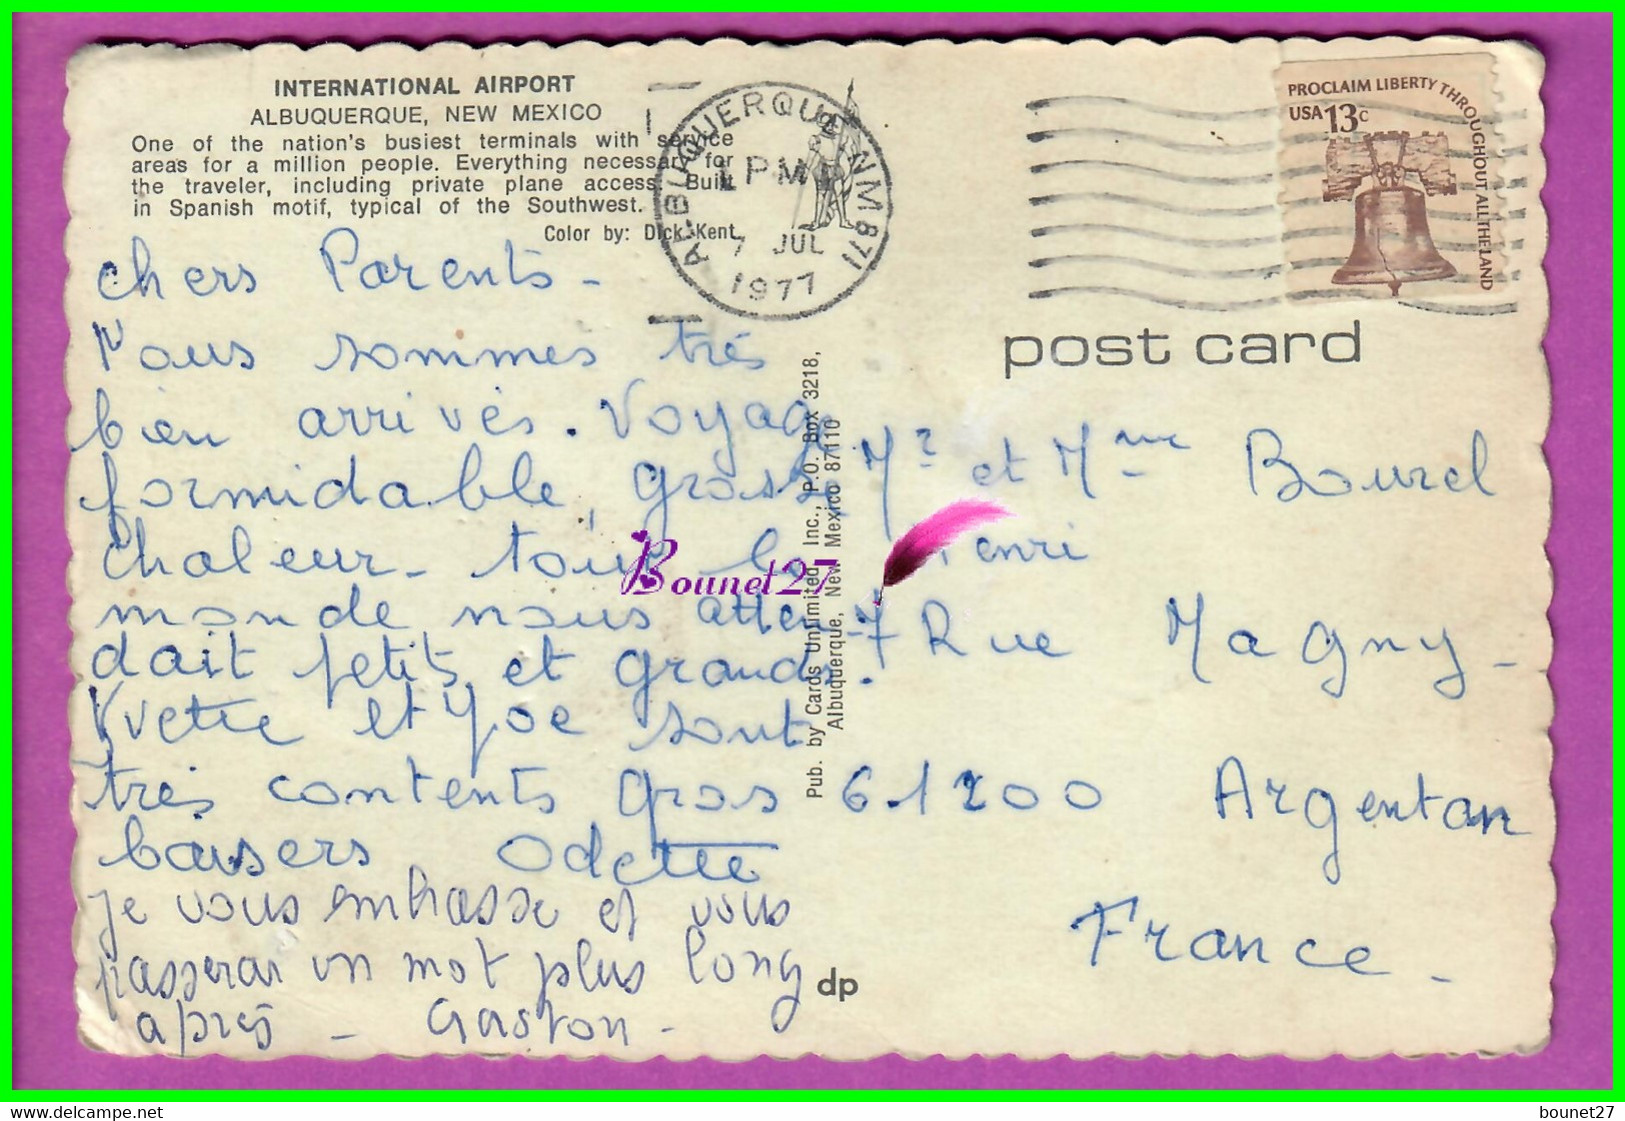 INTERNATIONAL AIRPORT
ALBUQUERQUE, NEW MEXICO
One of the nation's busiest terminals with service
areas for a million people. Everything necessary for
the traveler, including private plane access. Built
in Spanish motif, typical of the Southwest.
Color by: Dick Kent
ALBUQUERQUE NM 871
PM
7 JUL
1977
PROCLAIM LIBERTY THROUGHOUT ALL THE LAND
USA 13c
post card
chers Parents -
Nous sommes très
bien arrivés. Voyage
formidable, grosse
chaleur - tout le
monde nous atten-
dait petits et grands.
Yvette et Joe sont
très contents gros
baisers Odette
je vous embrasse et vous
passerai un mot plus long
après - Gaston -
Pub. by Cards Unlimited, Inc., P.O. Box 3218,
Albuquerque, New Mexico 87110
Mr et Mme Bourel
Henri
7 Rue Magny -
61200 Argentan
France -
dp
Bounet27
www.delcampe.net
bounet27